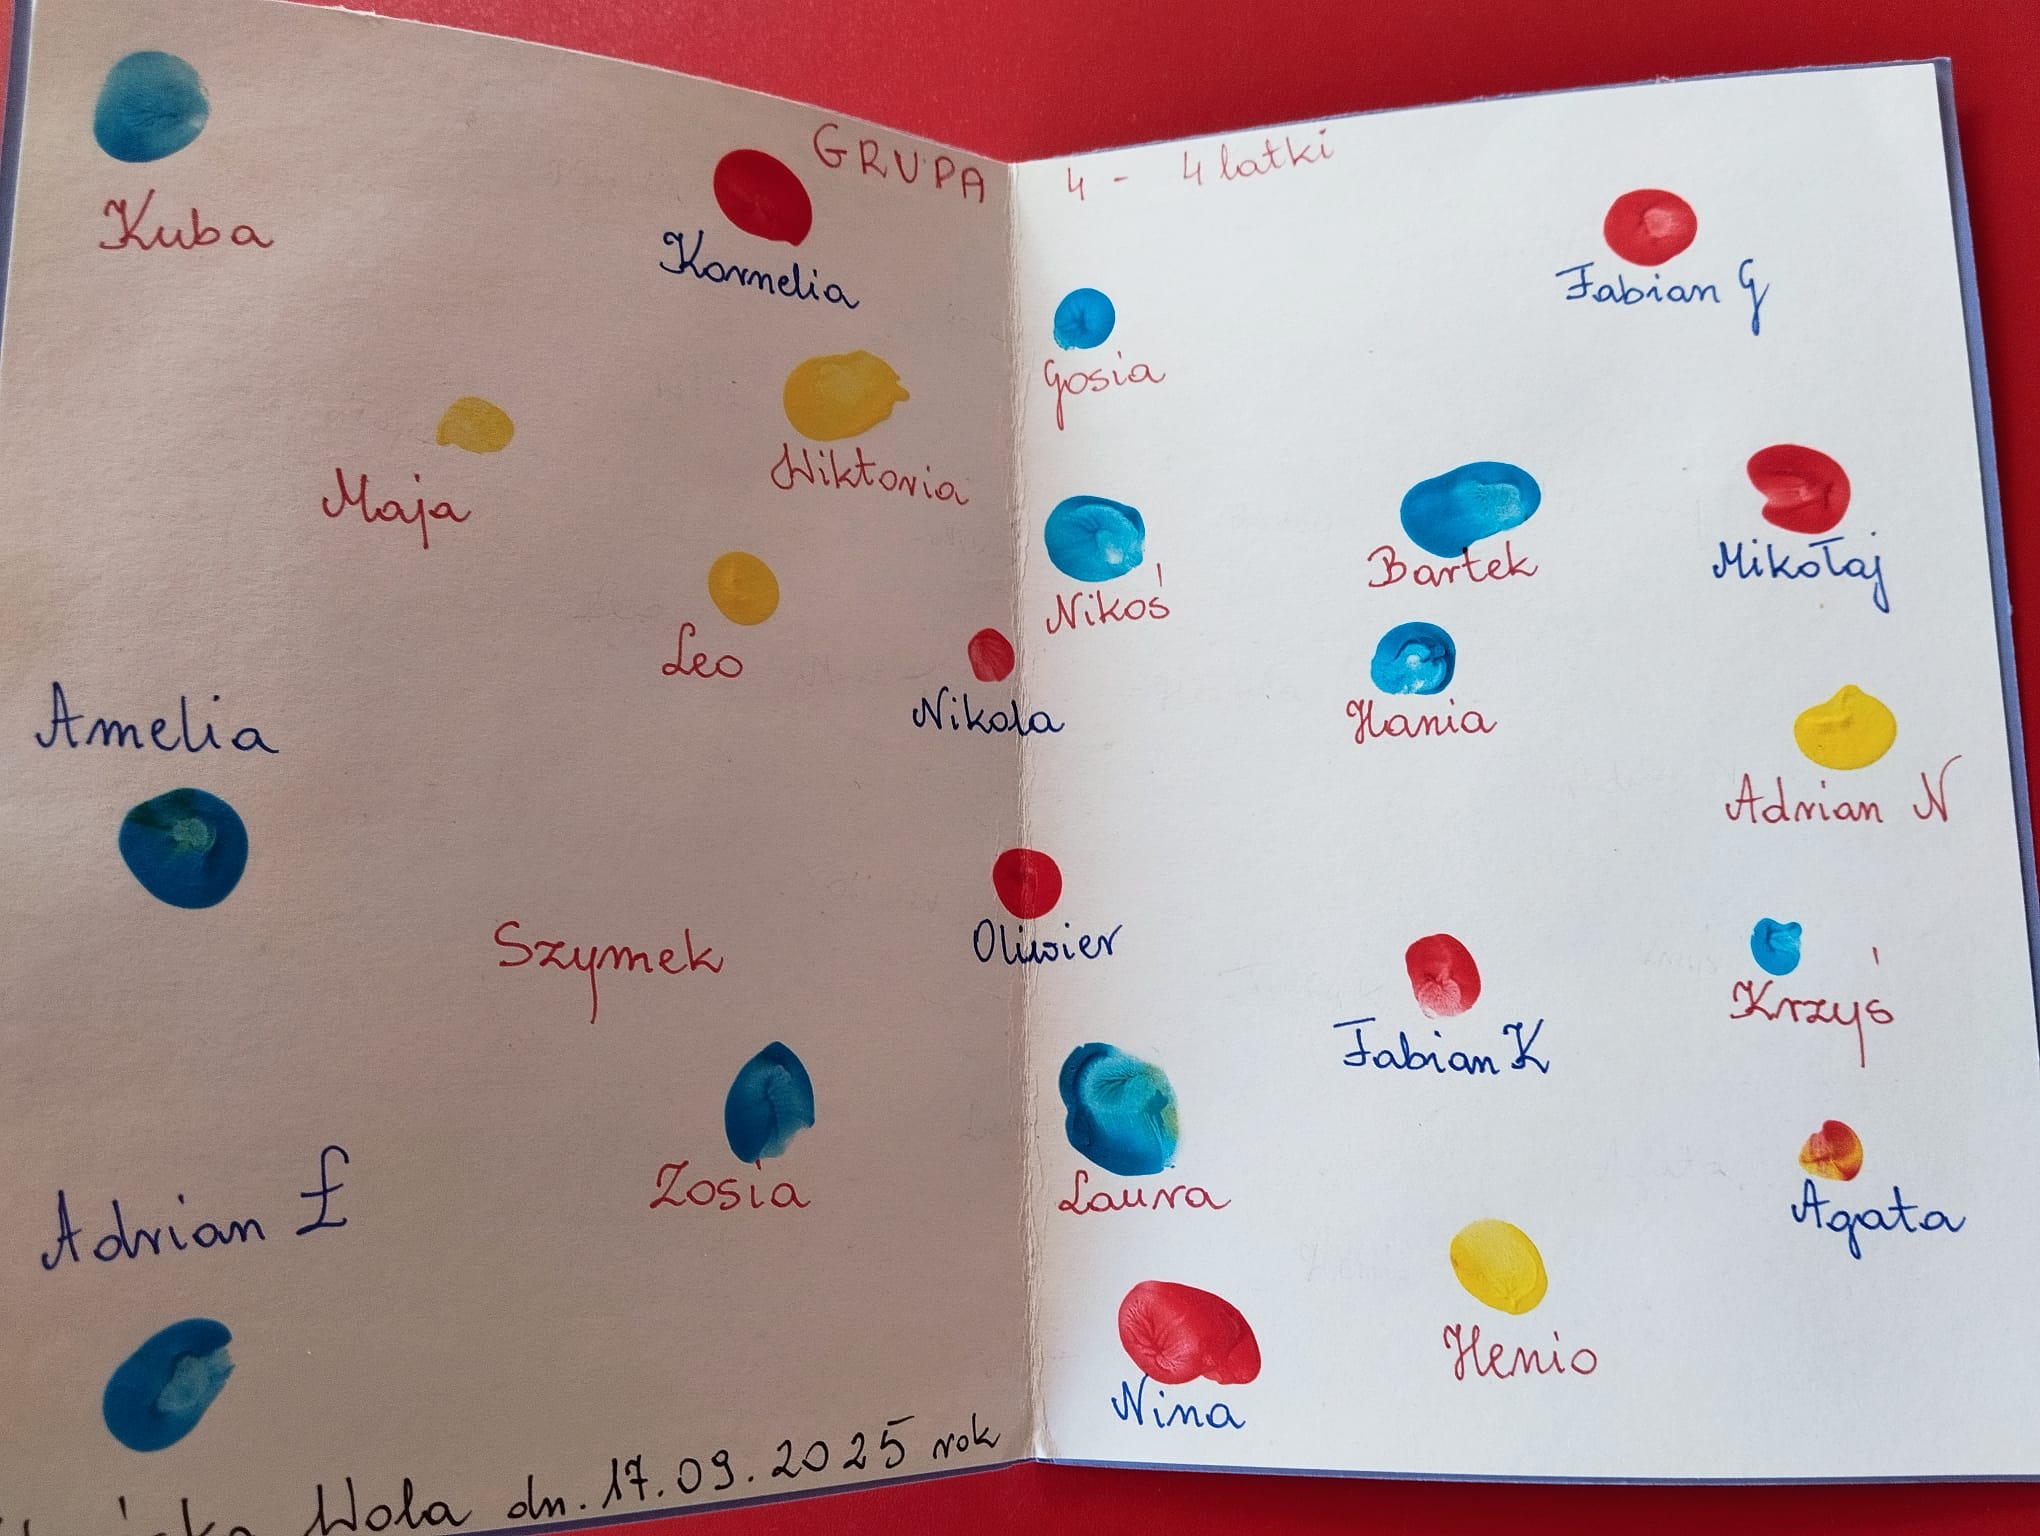 GRUPA 4 - 4 latki
Kuba
Kornelia
Maja
Wiktoria
Leo
Nikola
Amelia
Szymek
Oliwier
Zosia
Adrian Ł
Wola dn. 17.09.2025 rok
Fabian G
Gosia
Nikoś
Bartek
Mikołaj
Hania
Adrian N
Fabian K
Krzyś
Laura
Agata
Nina
Henio